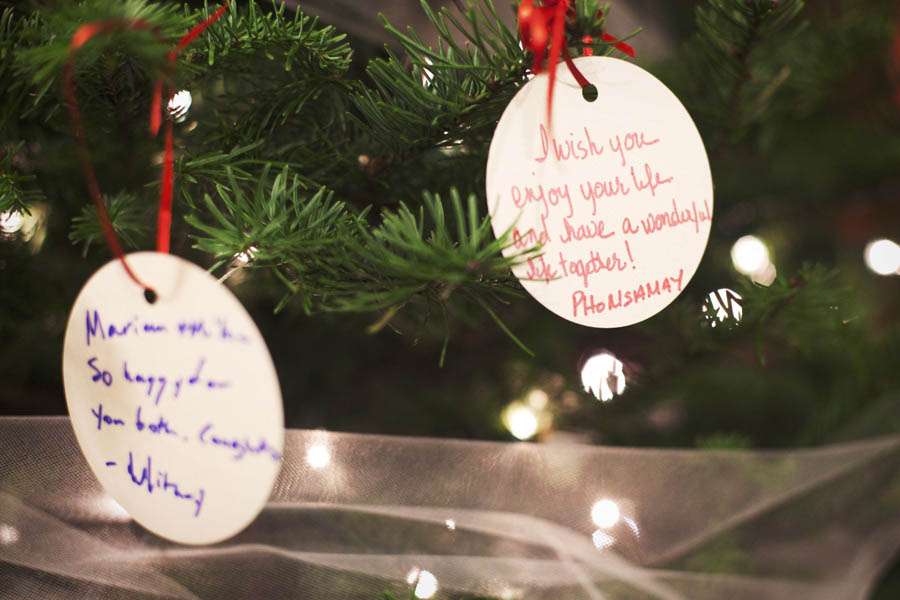 So happy for
you both. Congrats
- Mitzy
I wish you
enjoy your life
and have a wonderful
life together!
PHONSAMAY